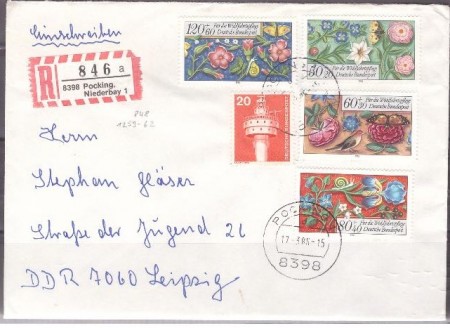 Einschreiben
R 846 a
8398 Pocking,
Niederbay 1
1259-62
120+60 Für die Wohlfahrtspflege
Deutsche Bundespost
50+20 Für die Wohlfahrtspflege
Deutsche Bundespost
20 DEUTSCHE BUNDESPOST
60+30 Für die Wohlfahrtspflege
Deutsche Bundespost
80+40 Für die Wohlfahrtspflege
Deutsche Bundespost
POCKING
8398
Herrn
Stephan Gläser
Straße der Jugend 26
DDR 7060 Leipzig